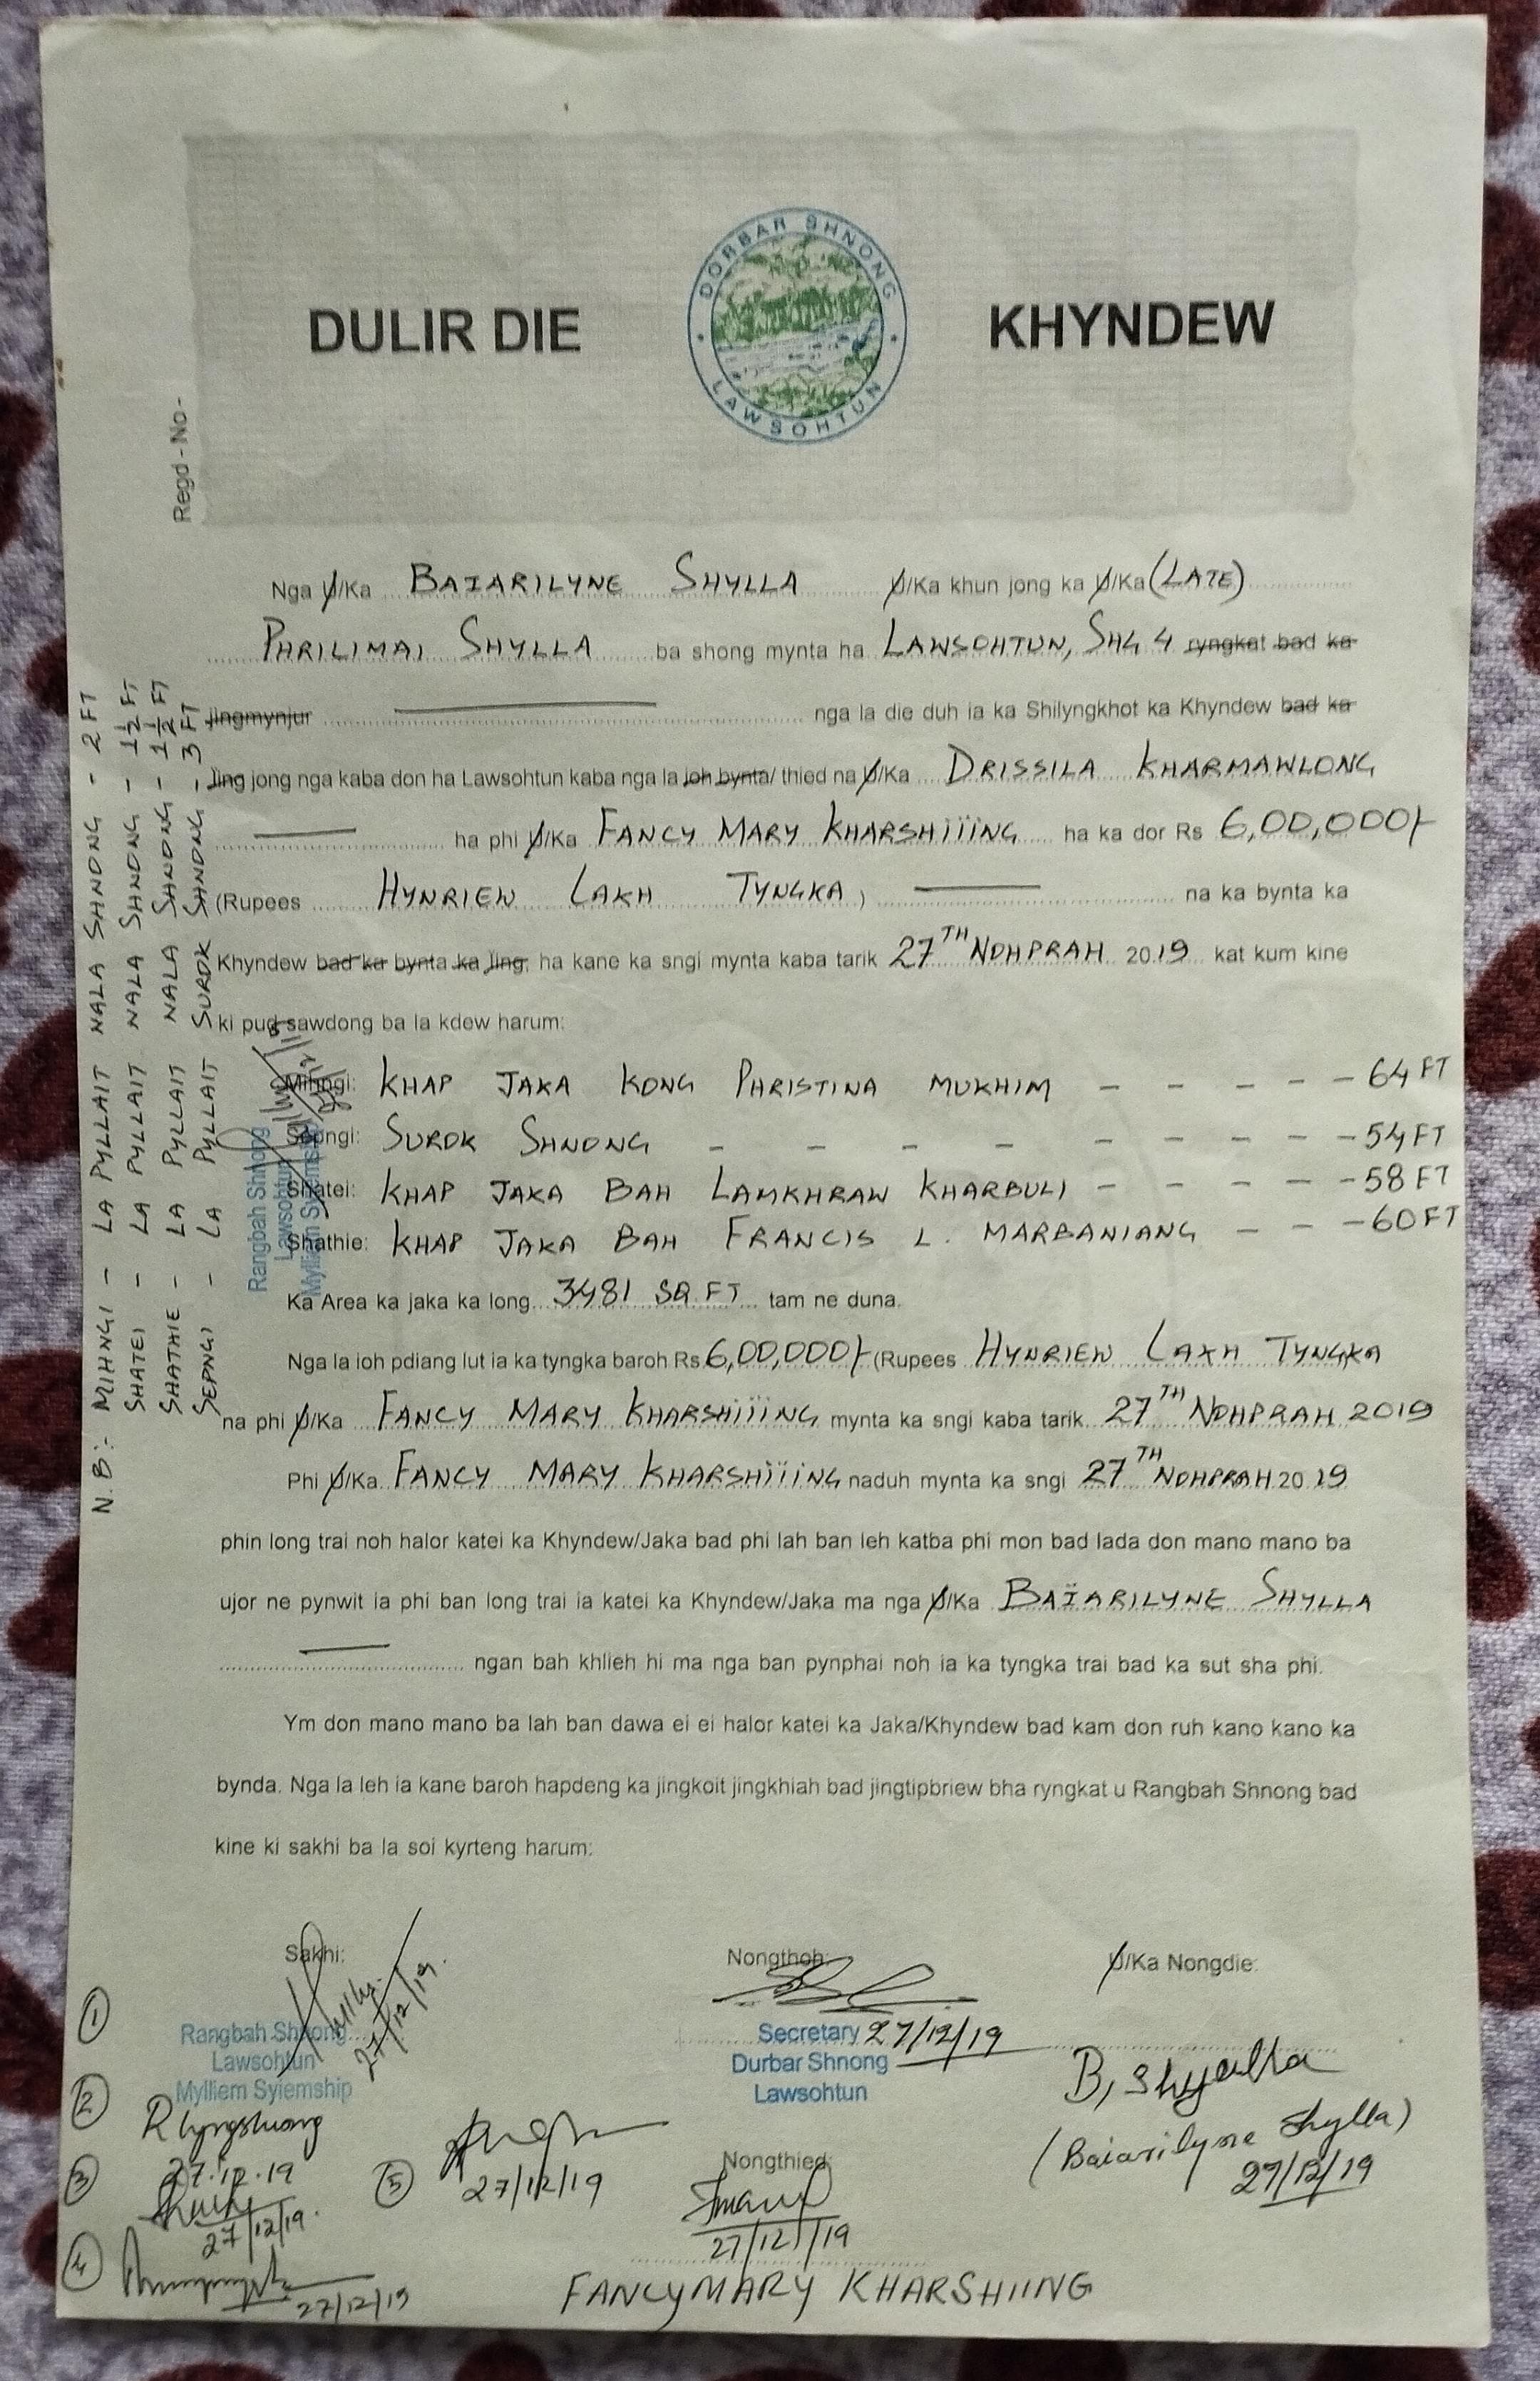 DORBAR SHNONG
LAWSOHTUN
DULIR DIE KHYNDEW
Regd - No -
Nga U/Ka BAIARILYNE SHYLLA U/Ka khun jong ka U/Ka (LATE)
PHRILIMAI SHYLLA ba shong mynta ha LAWSOHTUN, SHG 4 ryngkat bad ka
jingmynjur nga la die duh ia ka Shilyngkhot ka Khyndew bad ka
Jing jong nga kaba don ha Lawsohtun kaba nga la ioh bynta/ thied na U/Ka DRISSILA KHARMAWLONG
ha phi U/Ka FANCY MARY KHARSHIÏING ha ka dor Rs 6,00,000/-
(Rupees HYNRIEW LAKH TYNGKA) na ka bynta ka
Khyndew bad ka bynta ka Jing, ha kane ka sngi mynta kaba tarik 27TH NOHPRAH 2019 kat kum kine
ki pud sawdong ba la kdew harum:
Mihngi: KHAP JAKA KONG PHRISTINA MUKHIM - - - - - 64 FT
Sepngi: SUROK SHNONG - - - - - - - - 54 FT
Shatei: KHAP JAKA BAH LAMKHRAW KHARBULI - - - - - 58 FT
Shathie: KHAP JAKA BAH FRANCIS L. MARBANIANG - - - 60 FT
Rangbah Shnong
Lawsohtun
Mylliem Syiemship
Ka Area ka jaka ka long 3481 SQ FT tam ne duna.
Nga la ioh pdiang lut ia ka tyngka baroh Rs 6,00,000/- (Rupees HYNRIEW LAKH TYNGKA
na phi U/Ka FANCY MARY KHARSHIÏING mynta ka sngi kaba tarik 27TH NOHPRAH 2019
Phi U/Ka FANCY MARY KHARSHIÏING naduh mynta ka sngi 27TH NOHPRAH 2019
phin long trai noh halor katei ka Khyndew/Jaka bad phi lah ban leh katba phi mon bad lada don mano mano ba
ujor ne pynwit ia phi ban long trai ia katei ka Khyndew/Jaka ma nga U/Ka BAÏARILYNE SHYLLA
ngan bah khlieh hi ma nga ban pynphai noh ia ka tyngka trai bad ka sut sha phi.
Ym don mano mano ba lah ban dawa ei ei halor katei ka Jaka/Khyndew bad kam don ruh kano kano ka
bynda. Nga la leh ia kane baroh hapdeng ka jingkoit jingkhiah bad jingtipbriew bha ryngkat u Rangbah Shnong bad
kine ki sakhi ba la soi kyrteng harum:
N.B:- MIHNGI - LA PYLLAIT NALA SHNONG - 2 FT
SHATEI - LA PYLLAIT NALA SHNONG - 1 1/2 FT
SHATHIE - LA PYLLAIT NALA SHNONG - 1 1/2 FT
SEPNGI - LA PYLLAIT SUROK SHNONG - 3 FT
Sakhi:
1
27/12/19
Rangbah Shnong
Lawsohtun
Mylliem Syiemship
2
R Lyngshiang
27.12.19
3
27/12/19.
4
27/12/19
5
27/12/19
Nongthoh:
Secretary 27/12/19
Durbar Shnong
Lawsohtun
Nongthied:
27/12/19
FANCYMARY KHARSHIING
U/Ka Nongdie:
B, Shyalla
(Baiarilyne Shylla)
27/12/19